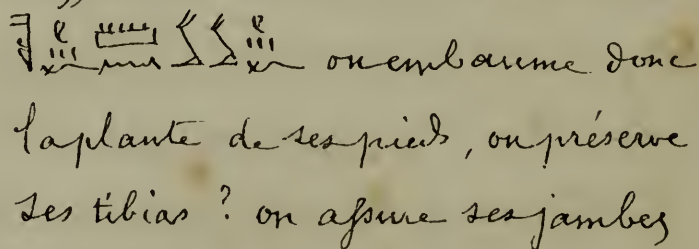 on embaume donc
la plante de ses pieds, on préserve
ses tibias ? on assure ses jambes